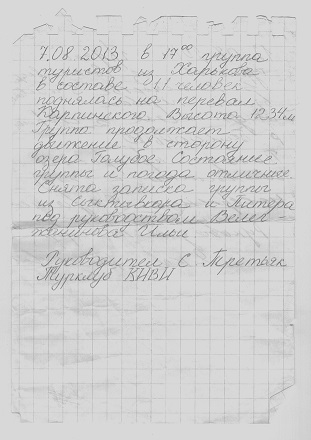 7.08.2013 в 17⁰⁰ группа
туристов из Харькова
в составе 11 человек
поднялась на перевал
Карпинского. Высота 1234м
Группа продолжает
движение в сторону
озера Голубое. Состояние
группы и погода отличные.
Снята записка группы
из Сыктывкора и Питера
под руководством
Ильи
Руководител С Третьяк
Турклуб